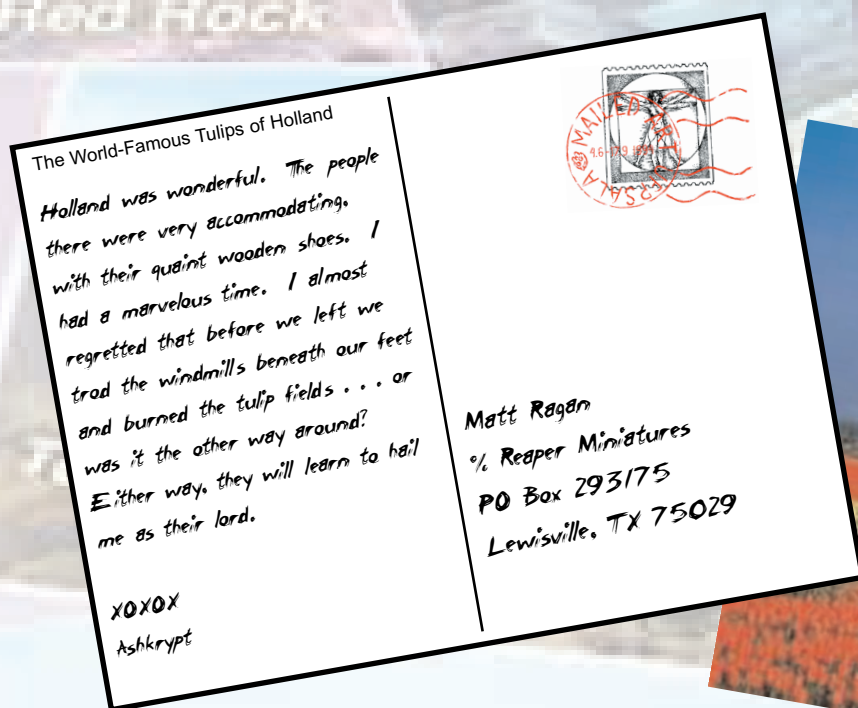 Red Rock
The World-Famous Tulips of Holland
Holland was wonderful. The people
there were very accommodating.
with their quaint wooden shoes. I
had a marvelous time. I almost
regretted that before we left we
trod the windmills beneath our feet
and burned the tulip fields . . . or
was it the other way around?
Either way, they will learn to hail
me as their lord.
XOXOX
Ashkrypt
MAILED
Matt Ragan
% Reaper Miniatures
PO Box 293175
Lewisville, TX 75029